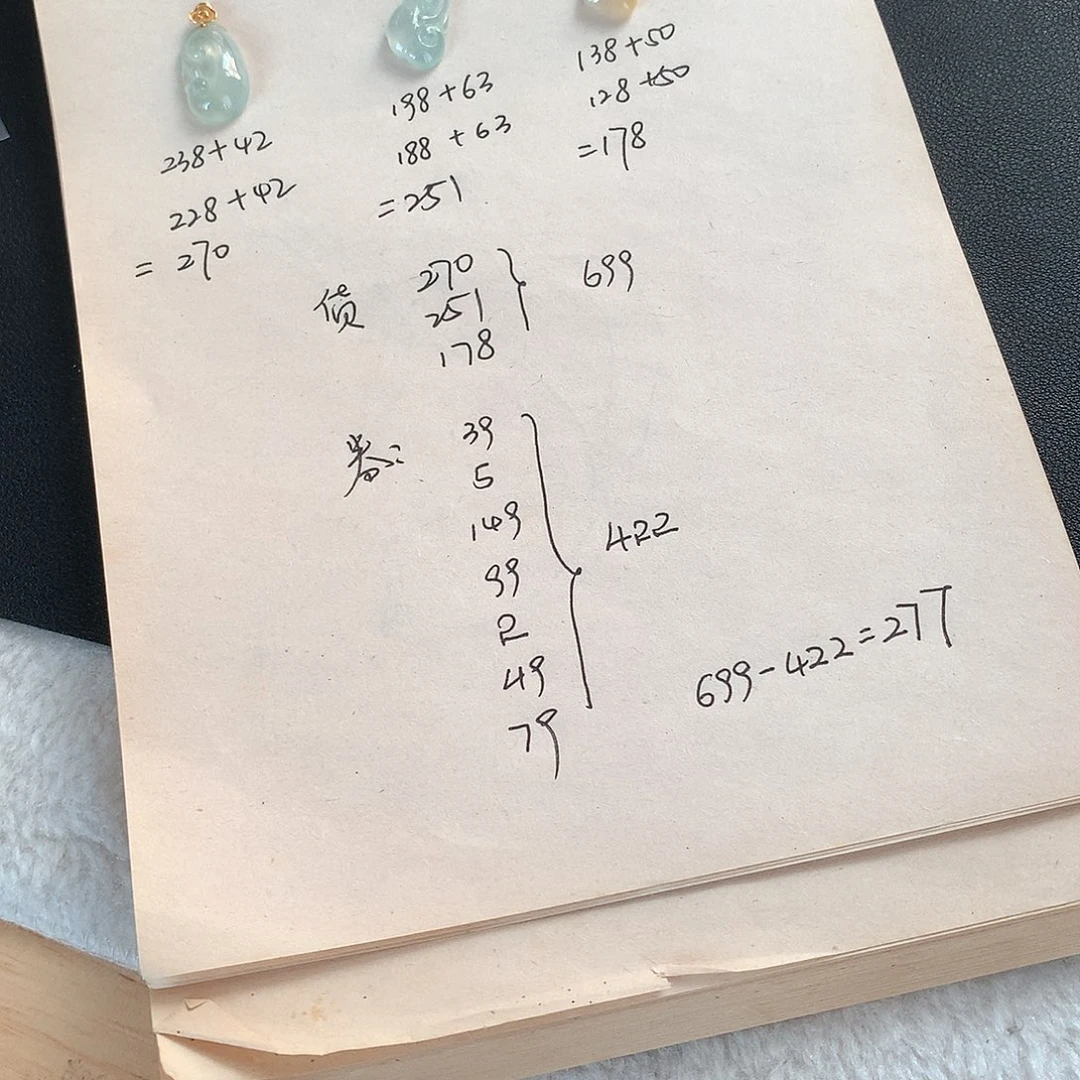 238+42
228+42
= 270
198+63
188+63
=251
138+50
128+50
=178
货 270
251
178
699
券: 39
5
149
99
2
49
79
422
699-422=277